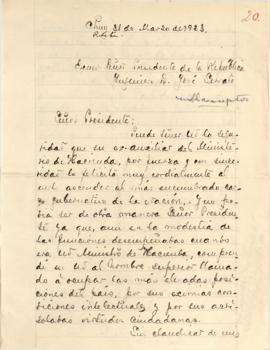 20.
31 de Marzo de 1923
Exmo Señor Presidente de la República
Ingeniero D. José Serrato
Señor Presidente:
Puede Señor Ud la segu-
ridad que su ex-auxiliar del Ministe-
rio de Hacienda, por fuerza y con sinceri-
dad lo felicita muy cordialmente al
ascender al más encumbrado car-
go gubernativo de la Nación. Y no po-
dría ser de otra manera Señor Presiden-
te ya que, aun en la modestia de
las funciones desempeñadas cuando
era Ud Ministro de Hacienda, compren-
dí en Ud al hombre superior llama-
do a ocupar las más elevadas posi-
ciones del país, por sus eximias con-
diciones intelectuales y por sus acri-
soladas virtudes ciudadanas.
Sin claudicar de mis